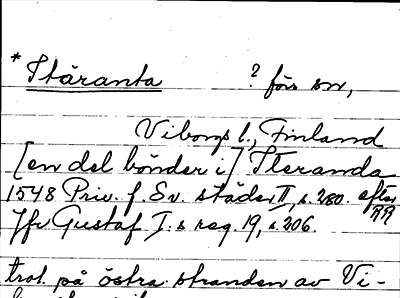 * Stäranta ? förs sn,
Viborgs l., Finland
[en del bönder i] Steranda
1548 Priv. f. Sv. städer II, s. 280. efter
Jfr Gustaf I:s reg. 19, s. 206.
trol. på östra stranden av Vi-